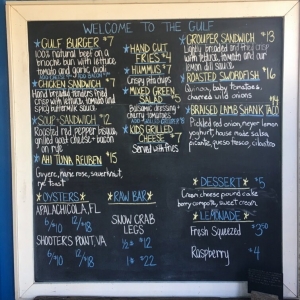 WELCOME TO THE GULF
GULF BURGER $7
100% natural beef on a
brioche bun with lettuce
tomato and garlic aioli
CHICKEN SANDWICH
Hand breaded tenders fried
crisp with lettuce, tomato and
spicy mayonnaise
SOUP + SANDWICH $12
Roasted red pepper bisque
grilled goat cheese + bacon
on rye
AHI TUNA REUBEN $15
Gruyere, house made, sauerkraut,
rye toast
HAND CUT
FRIES $4
HUMMUS $7
Crispy pita chips
MIXED GREEN
SALAD
Balsamic dressing
cherry tomatoes
KIDS GRILLED
CHEESE $7
Served with fries
GROUPER SANDWICH $13
Lightly breaded and fried crisp
with lettuce, tomato and our
lemon dill sauce
ROASTED SWORDFISH $16
Quinoa, baby tomatoes,
charred wild onions
BRAISED LAMB SHANK TACO $14
Pickled red onion, meyer lemon
yoghurt, house made salsa
picante, queso fresco, cilantro
OYSTERS
APALACHICOLA, FL
6/$10 12/$18
SHOOTERS POINT, VA
6/$10 12/$18
RAW BAR
SNOW CRAB
LEGS
1/2# $12
1# $22
DESSERT $5
Cream cheese pound cake
berry compote, sweet cream
LEMONADE
Fresh Squeezed $3.50
Raspberry $4